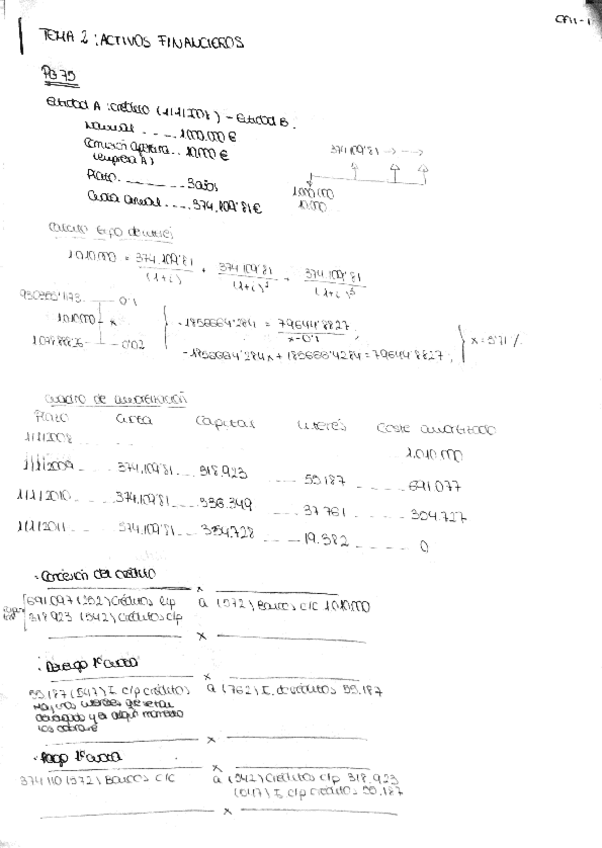 CFII-1
TEMA 2: ACTIVOS FINANCIEROS
PG 75
Entidad A: crédito (1/1/2008) - Entidad B.
Nominal ---- 1.000.000 €
Comisión apertura .. 10.000 €
(empresa A)
Plazo. ------- 3 años
Cuota anual ---- 374.109'81 €
374.109'81 → - →
1.000.000
10.000
Cálculo tipo de interés
1.010.000 = 374.109'81 / (1+i) + 374.109'81 / (1+i)² + 374.109'81 / (1+i)³
0'1
1.010.000 x
0'02
x = 5'71 %
Cuadro de amortización
Plazo Cuota Capital Interés Coste amortizado
1/1/2008 1.010.000
1/1/2009 374.109'81 318.923 55.187 691.077
1/1/2010 374.109'81 336.349 37.761 354.727
1/1/2011 374.109'81 354.728 19.382 0
· Concesión del crédito
x
691.097 (252) Créditos l/p a (572) Bancos c/c 1.010.000
318.923 (542) Créditos c/p
x
· Devengo 1ª cuota
x
55.187 (547) I. c/p créditos a (762) I. de créditos 55.187
los cobraré
x
· Pago 1ª cuota
x
374.110 (572) Bancos c/c a (542) Créditos c/p 318.923
(547) I. c/p créditos 55.187
x